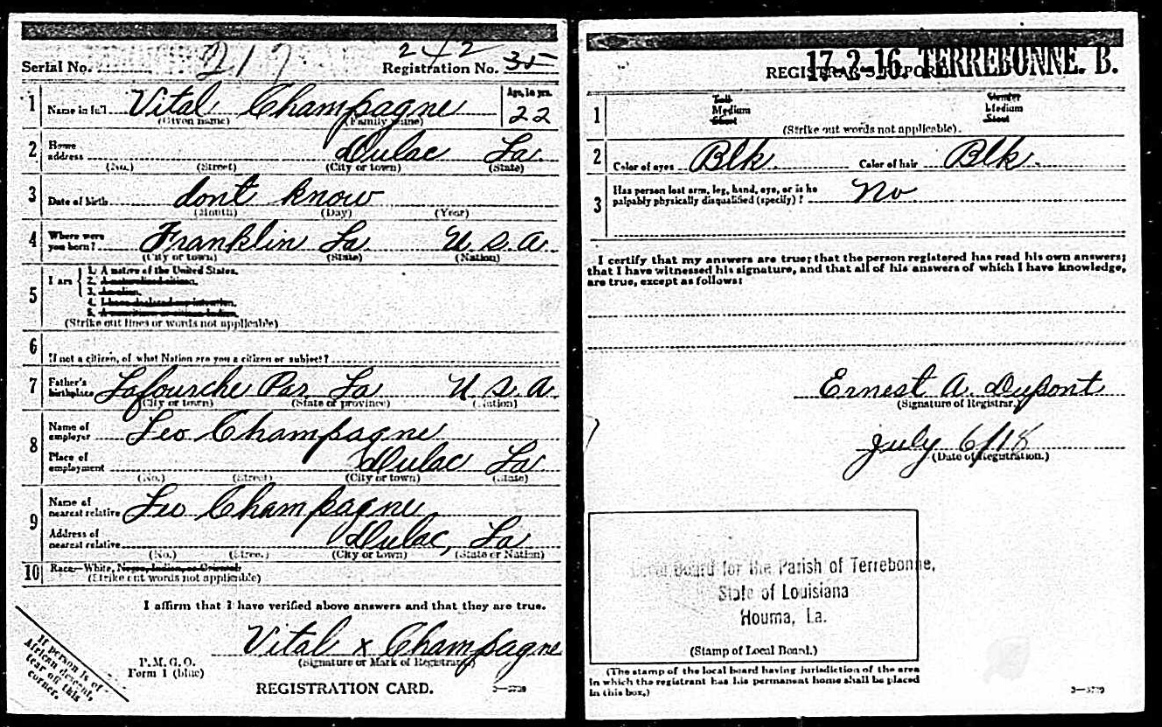 Serial No. 217 242
Registration No. 35
1 Name in full Vital Champagne Age, in yrs. 22
(Given name) (Family name)
2 Home address Dulac La
(No.) (Street) (City or town) (State)
3 Date of birth dont know
(Month) (Day) (Year)
4 Where were you born? Franklin La U S A.
(City or town) (State) (Nation)
5 I am
1. A native of the United States.
2. A naturalized citizen.
3. An alien.
4. I have declared my intention.
5.
(Strike out lines or words not applicable)
6
If not a citizen, of what Nation are you a citizen or subject?
7 Father's birthplace Lafourche Par La U S A
(City or town) (State or province) (Nation)
8 Name of employer Leo Champagne
Place of employment Dulac La
(No.) (Street) (City or town) (State)
9 Name of nearest relative Leo Champagne
Address of nearest relative Dulac, La
(No.) (Street) (City or town) (State or Nation)
10 Race—White, Negro, Indian, or Oriental
(Strike out words not applicable)
I affirm that I have verified above answers and that they are true.
Vital x Champagne
(Signature or Mark of Registrant)
If person is of
African descent,
tear off this
corner.
P. M. G. O.
Form 1 (blue)
REGISTRATION CARD. 3—5729
17-2-16. TERREBONNE. B.
REGISTRAR'S REPORT
1
Tall
Medium
Short
Slender
Medium
Stout
(Strike out words not applicable).
2 Color of eyes Blk Color of hair Blk.
3 Has person lost arm, leg, hand, eye, or is he
palpably physically disqualified (specify)? No
I certify that my answers are true; that the person registered has read his own answers;
that I have witnessed his signature, and that all of his answers of which I have knowledge,
are true, except as follows:
Ernest A. Dupont
(Signature of Registrar.)
July 6/18
(Date of Registration.)
Local Board for the Parish of Terrebonne,
State of Louisiana
Houma, La.
(Stamp of Local Board.)
(The stamp of the local board having jurisdiction of the area
in which the registrant has his permanent home shall be placed
in this box.)
3—5729